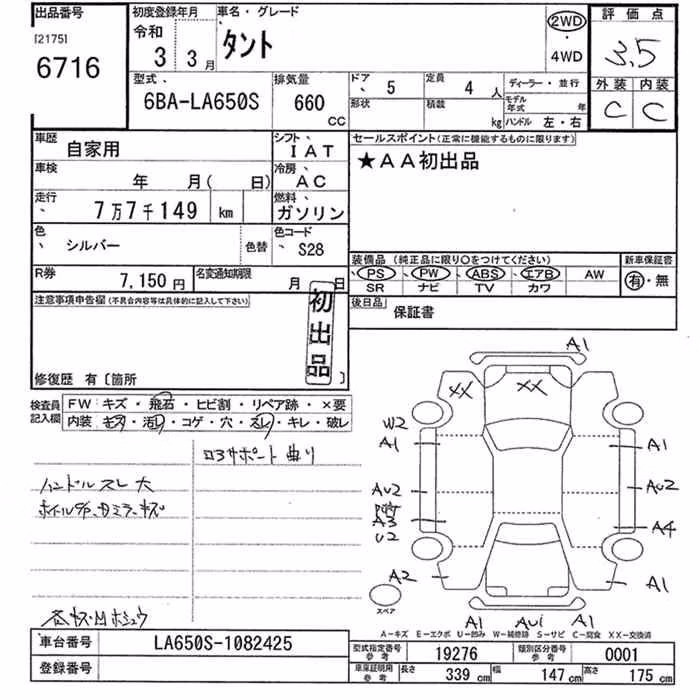 出品番号
[2175]
6716
初度登録年月
令和
3年 3月
車名・グレード
タント
2WD
・
4WD
評価点
3.5
外装 内装
C C
型式、
6BA-LA650S
排気量
660
CC
ドア、 5
定員 4 人
ディーラー・並行
形状
積載 kg
モデル年式 年
ハンドル 左・右
車歴
自家用
シフト、
IAT
車検
年 月( 日)
冷房、
AC
走行、
7万7千149 km
燃料、
ガソリン
色、
シルバー
色替
色コード、
S28
R券
7,150 円
名変通知期限
月 日
セールスポイント(正常に機能するものに限ります)
★AA初出品
装備品 (純正品に限り○をつけてください)
新車保証書
PS PW ABS エアB AW
SR ナビ TV カワ
有・無
後日品
保証書
注意事項申告欄(不具合内容等は具体的に記入して下さい)
初出品
修復歴 有〔箇所 〕
検査員記入欄
FW キズ・飛石・ヒビ割・リペア跡・×要
内装 キズ・汚レ・コゲ・穴・スレ・キレ・破レ
ロアサポート曲り
ハンドルスレ大
A1
XX XX
W2
A1 A1
AU2 AU2
A3 A4
U2
A2 A1
スペア
A1 AU1 A1
A—キズ E—エクボ U—凹み W—補修跡 S—サビ C—腐食 XX—交換済
車台番号 LA650S-1082425
登録番号
型式指定番号 参考 19276
類別区分番号 参考 0001
車車証明用 参考 長さ 339 cm 幅 147 cm 高さ 175 cm